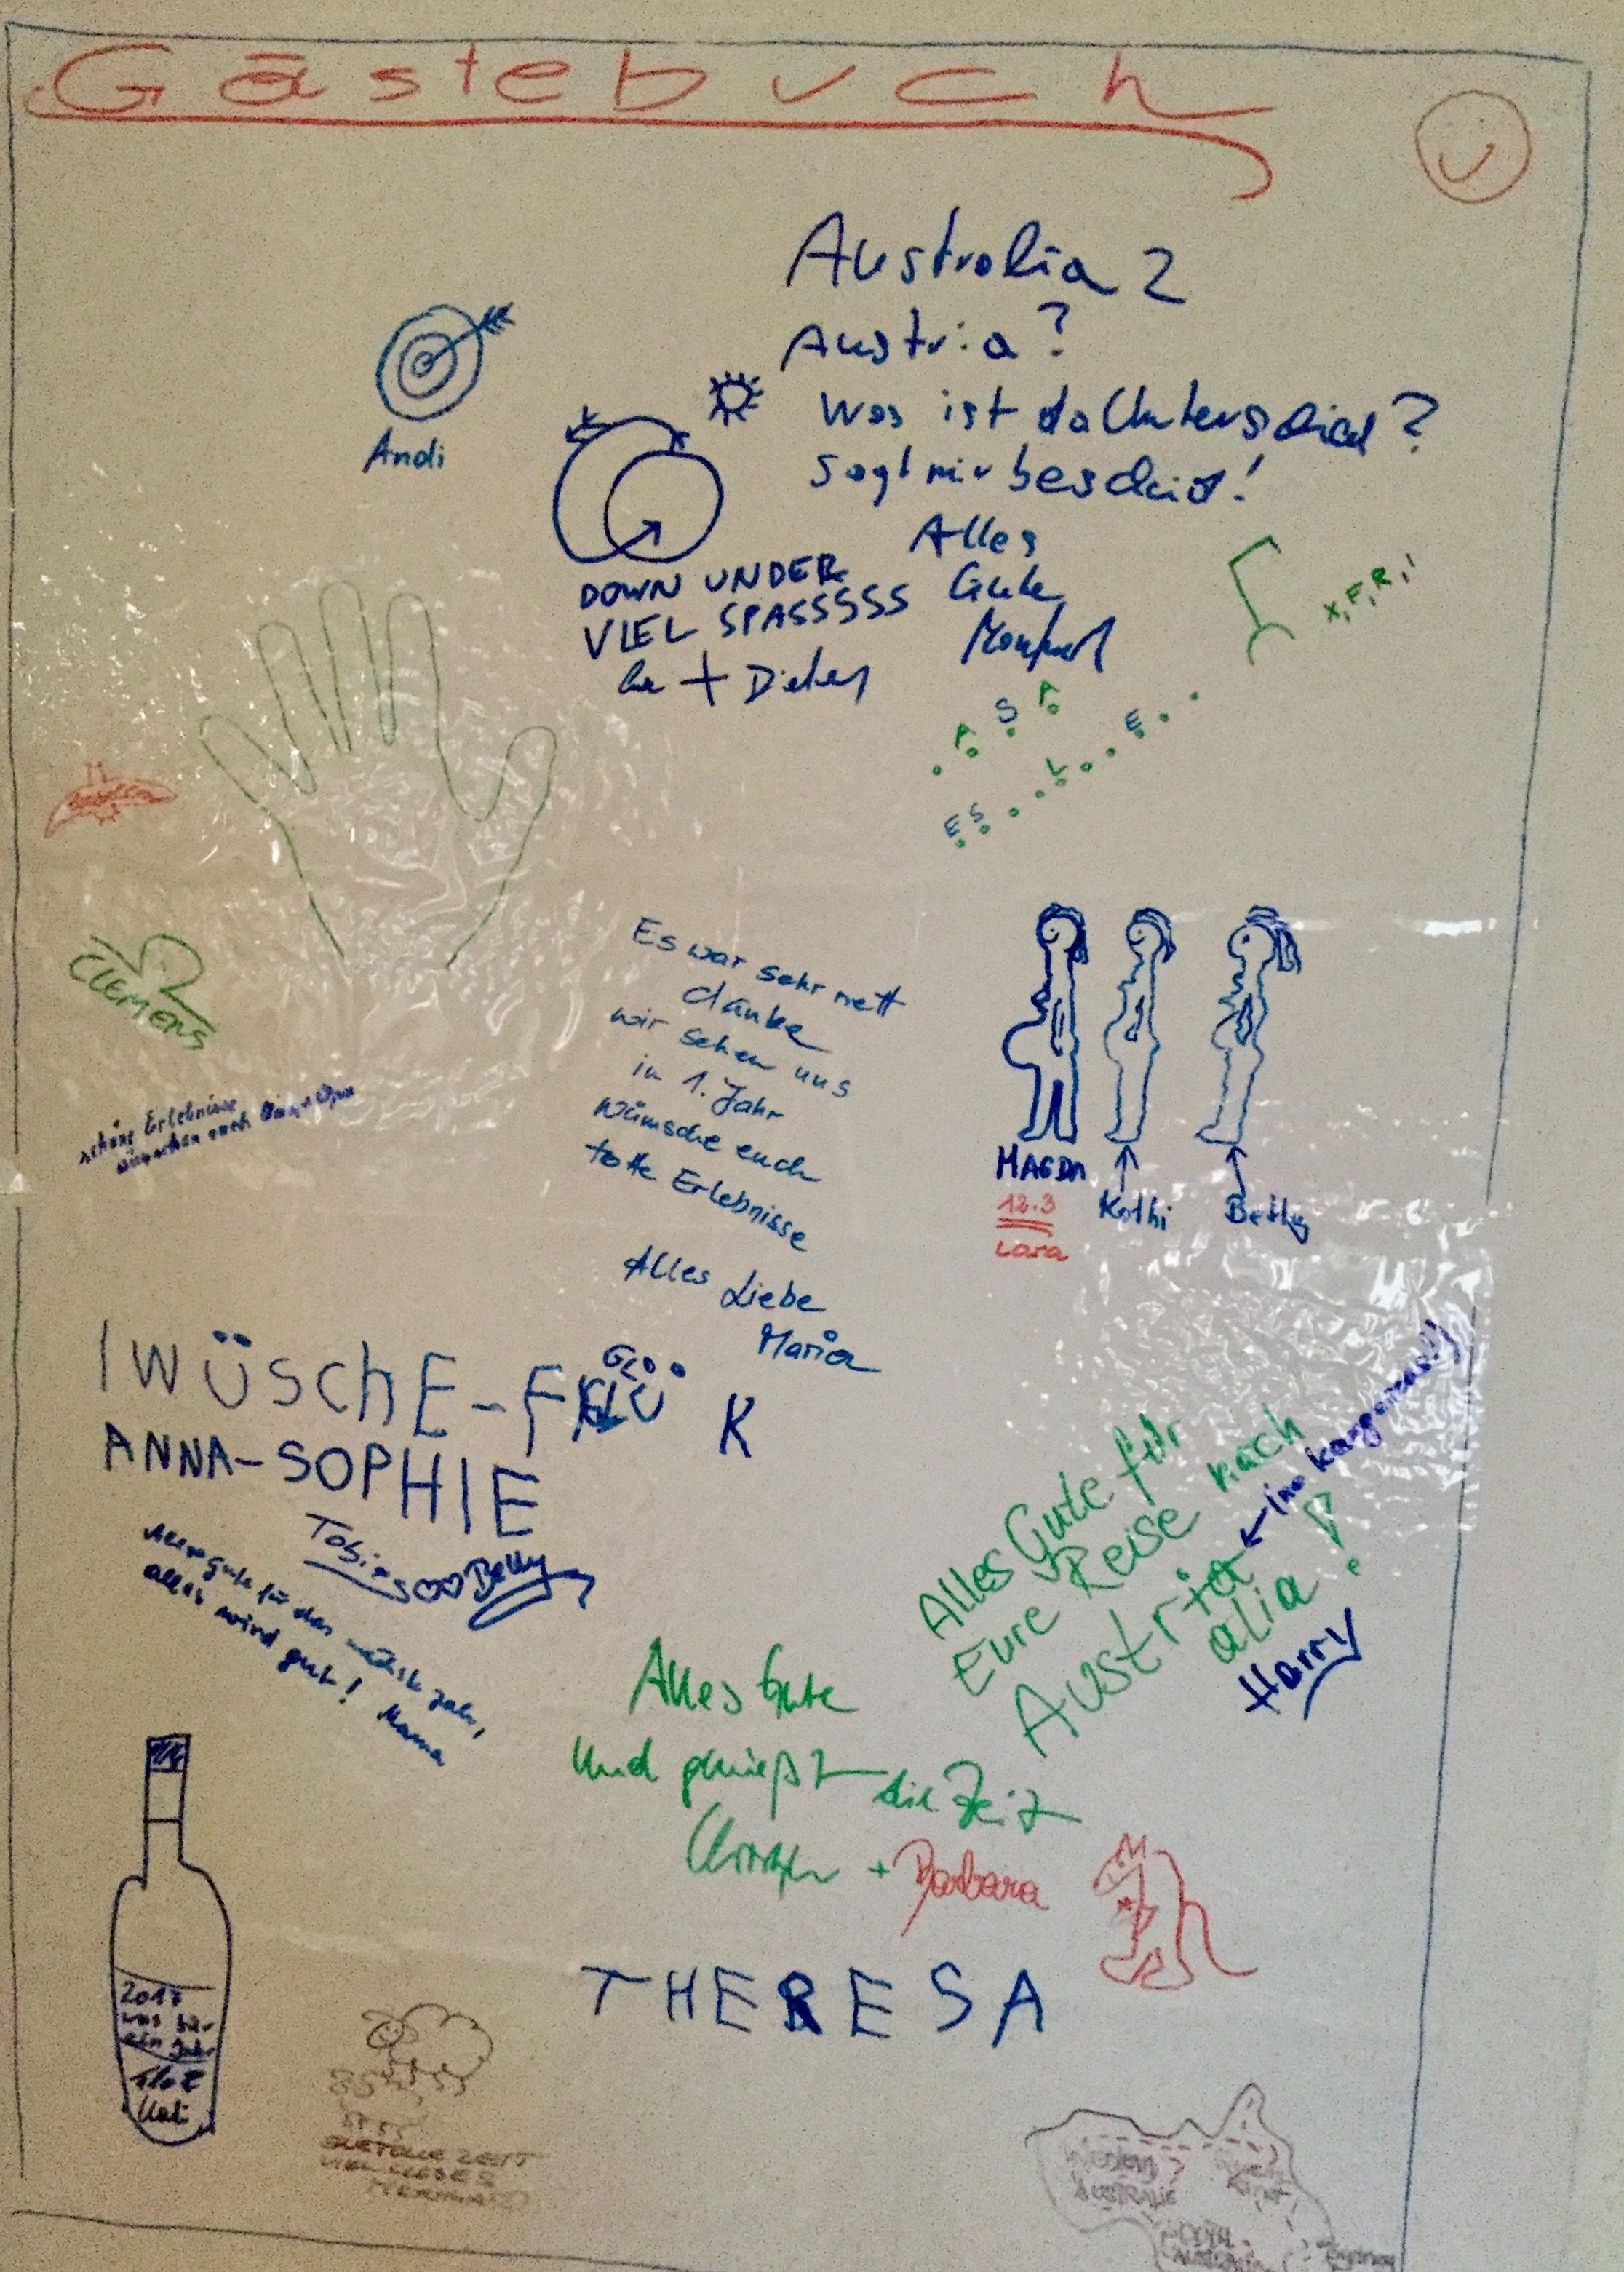 Gästebuch
Australia ?
Austria?
Was ist da Unterschied?
Sagt mir bescheid!
Alles
Gute
Andi
DOWN UNDER
VIEL SPASSSSS
+ Dieter
X, F, R, !
P S P
E S L E
CLEMENS
schöne Erlebnisse
wünschen euch Oma + Opa
Es war sehr nett
danke
wir sehen uns
in 1. Jahr
Wünsche euch
tolle Erlebnisse
Alles Liebe
Maria
MAGDA
Kathi
Betty
12.3
Lara
I WÜSChE-F GLÜ K
ANNA-SOPHIE
Tobias ♡♡ Betty
Alles gute für das nächste Jahr,
alles wird gut! Mama
Alles Gute für
Eure Reise nach
Austria ← (no kangaroos!!)
alia!
Harry
Alles Gute
und genießt die Zeit
+ Barbara
THERESA
2017
was für
ein Jahr
Kati
TOLLE ZEIT
VIEL
Western
AUSTRALIE